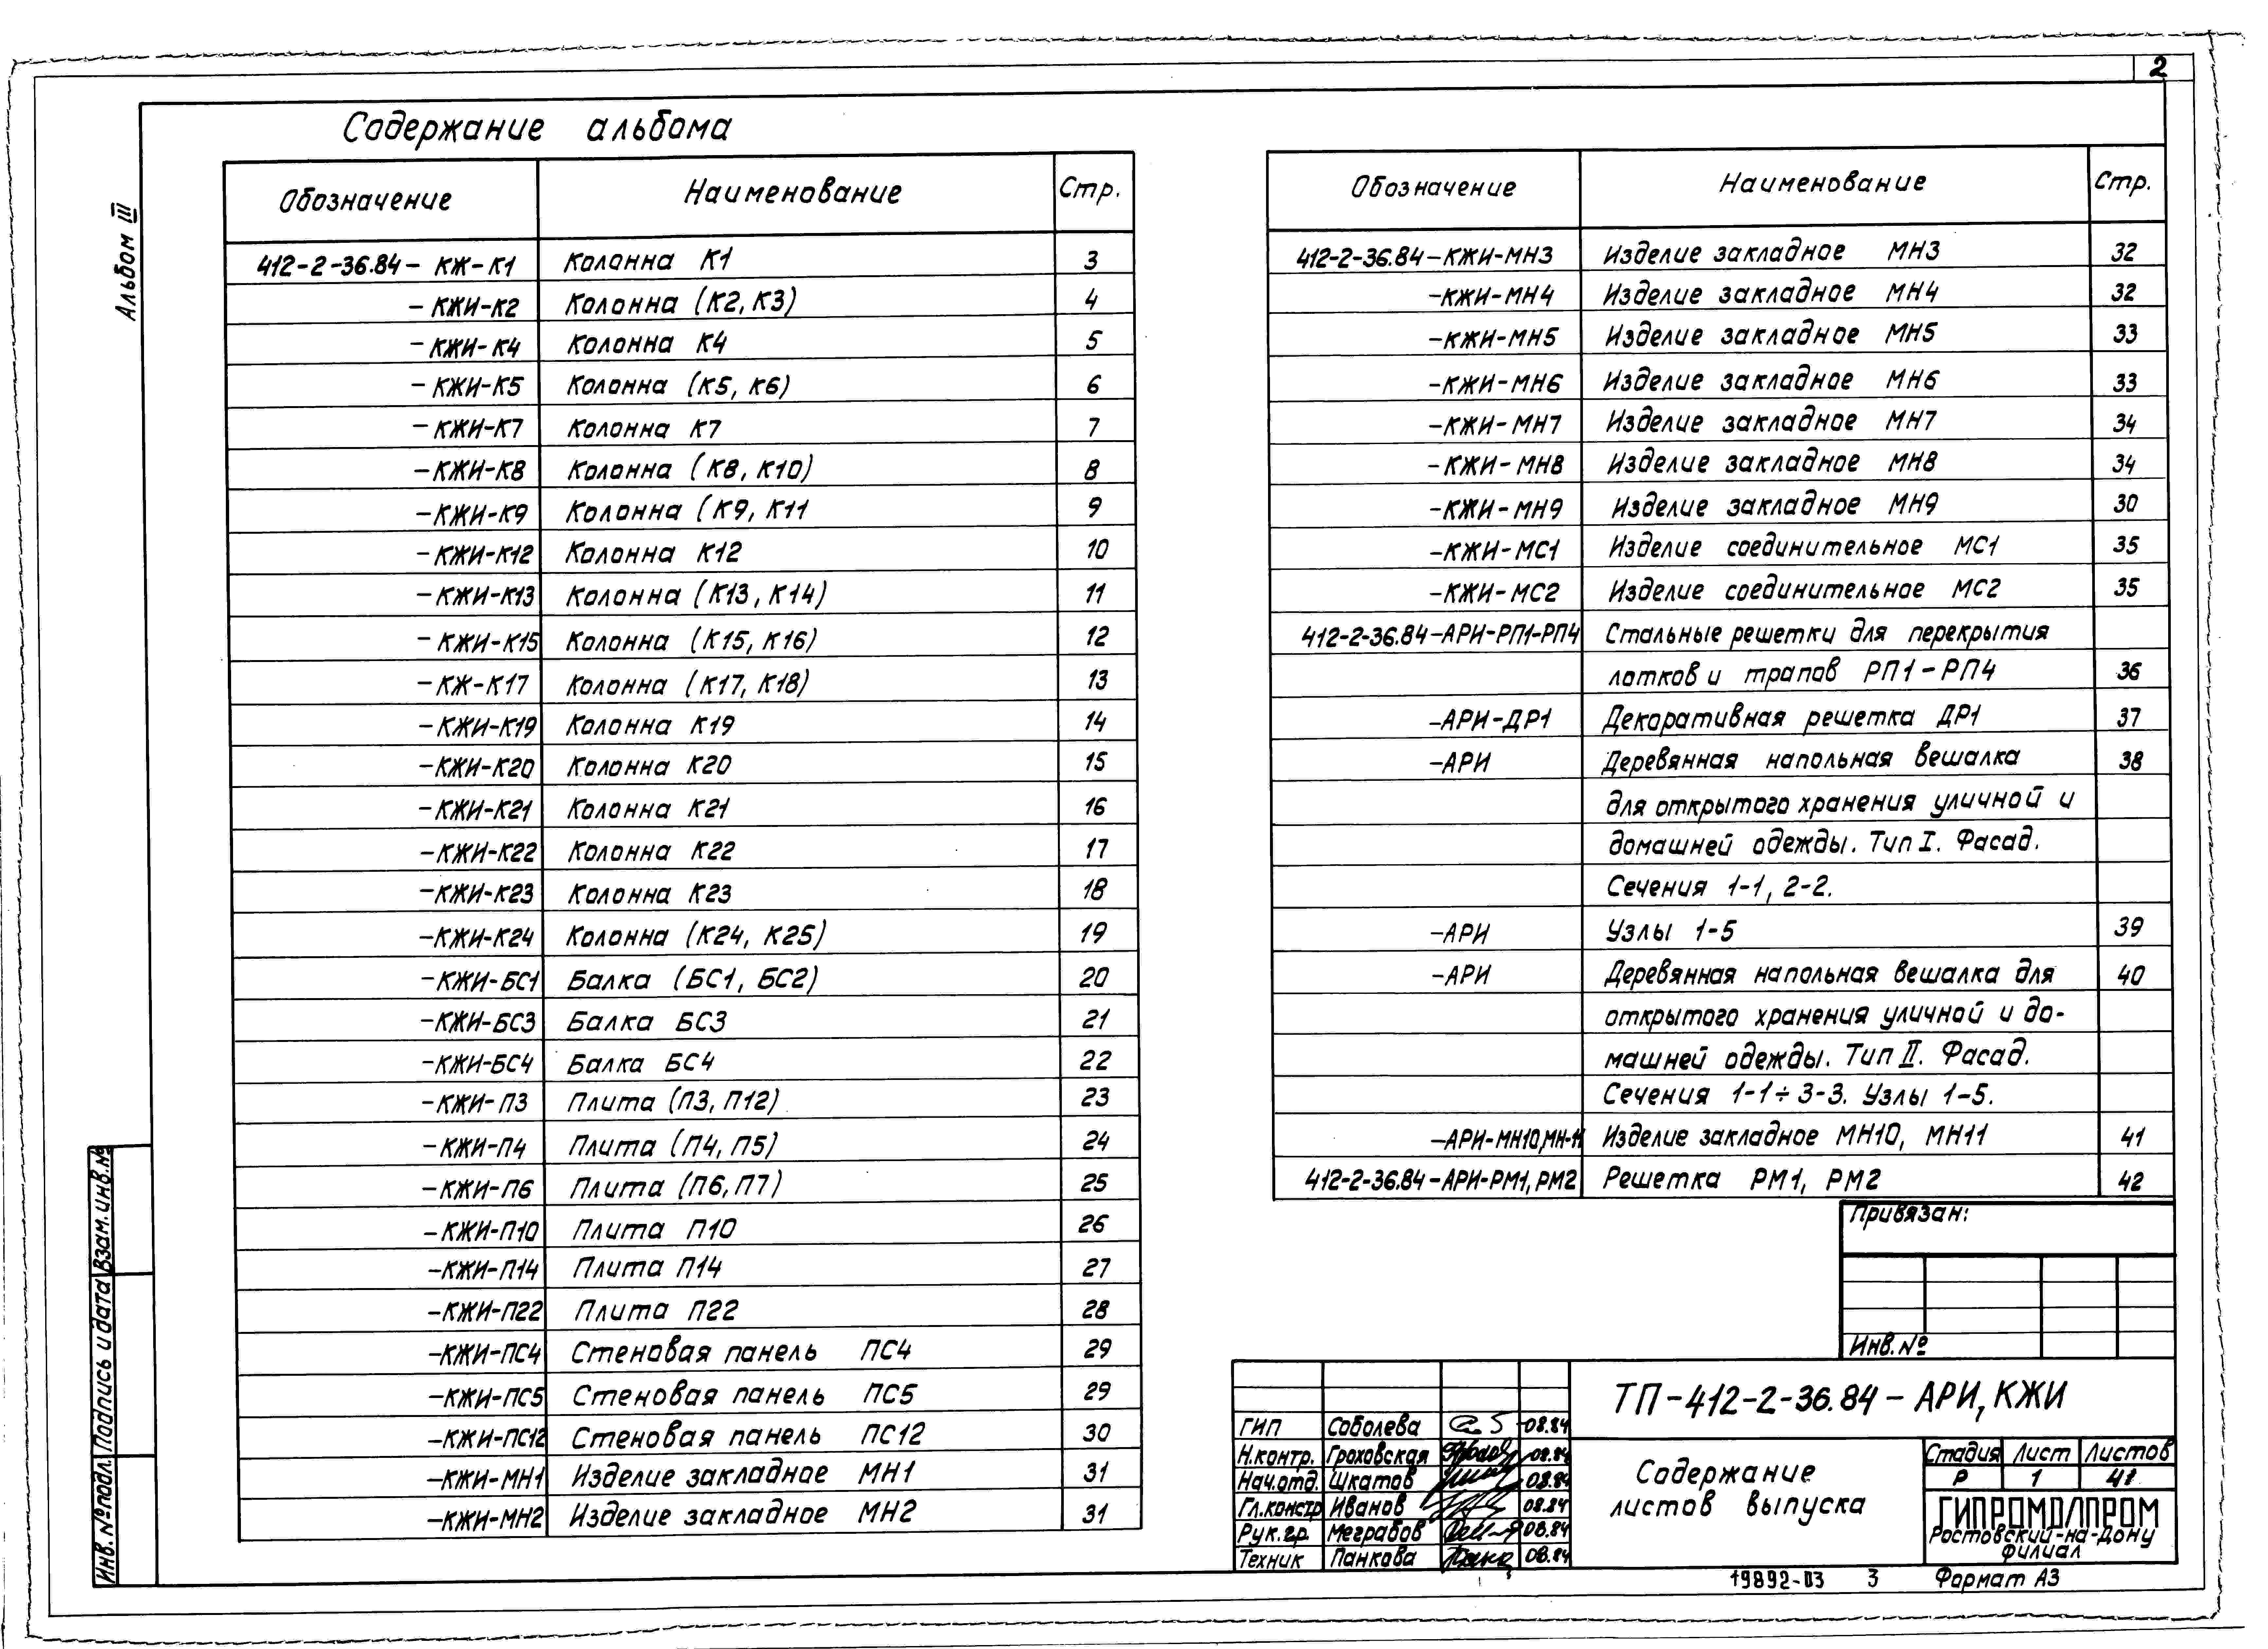 2
Содержание альбома
Альбом III
Обозначение Наименование Стр.
412-2-36.84- КЖ-К1 Колонна К1 3
-КЖИ-К2 Колонна (К2, К3) 4
-КЖИ-К4 Колонна К4 5
-КЖИ-К5 Колонна (К5, К6) 6
-КЖИ-К7 Колонна К7 7
-КЖИ-К8 Колонна (К8, К10) 8
-КЖИ-К9 Колонна (К9, К11 9
-КЖИ-К12 Колонна К12 10
-КЖИ-К13 Колонна (К13, К14) 11
-КЖИ-К15 Колонна (К15, К16) 12
-КЖ-К17 Колонна (К17, К18) 13
-КЖИ-К19 Колонна К19 14
-КЖИ-К20 Колонна К20 15
-КЖИ-К21 Колонна К21 16
-КЖИ-К22 Колонна К22 17
-КЖИ-К23 Колонна К23 18
-КЖИ-К24 Колонна (К24, К25) 19
-КЖИ-БС1 Балка (БС1, БС2) 20
-КЖИ-БС3 Балка БС3 21
-КЖИ-БС4 Балка БС4 22
-КЖИ-П3 Плита (П3, П12) 23
-КЖИ-П4 Плита (П4, П5) 24
-КЖИ-П6 Плита (П6, П7) 25
-КЖИ-П10 Плита П10 26
-КЖИ-П14 Плита П14 27
-КЖИ-П22 Плита П22 28
-КЖИ-ПС4 Стеновая панель ПС4 29
-КЖИ-ПС5 Стеновая панель ПС5 29
-КЖИ-ПС12 Стеновая панель ПС12 30
-КЖИ-МН1 Изделие закладное МН1 31
-КЖИ-МН2 Изделие закладное МН2 31
Обозначение Наименование Стр.
412-2-36.84-КЖИ-МН3 Изделие закладное МН3 32
-КЖИ-МН4 Изделие закладное МН4 32
-КЖИ-МН5 Изделие закладное МН5 33
-КЖИ-МН6 Изделие закладное МН6 33
-КЖИ-МН7 Изделие закладное МН7 34
-КЖИ-МН8 Изделие закладное МН8 34
-КЖИ-МН9 Изделие закладное МН9 30
-КЖИ-МС1 Изделие соединительное МС1 35
-КЖИ-МС2 Изделие соединительное МС2 35
412-2-36.84-АРИ-РП1-РП4 Стальные решетки для перекрытия
лотков и трапов РП1-РП4 36
-АРИ-ДР1 Декоративная решетка ДР1 37
-АРИ Деревянная напольная вешалка 38
для открытого хранения уличной и
домашней одежды. Тип I. Фасад.
Сечения 1-1, 2-2.
-АРИ Узлы 1-5 39
-АРИ Деревянная напольная вешалка для 40
открытого хранения уличной и до-
машней одежды. Тип II. Фасад.
Сечения 1-1÷3-3. Узлы 1-5.
-АРИ-МН10,МН-11 Изделие закладное МН10, МН11 41
412-2-36.84-АРИ-РМ1, РМ2 Решетка РМ1, РМ2 42
Привязан:
Инв.№
ТП-412-2-36.84-АРИ, КЖИ
ГИП Соболева 08.84
Н.контр. Гроховская 08.84
Нач.отд. Шкатов 08.84
Гл.констр Иванов 08.84
Рук.гр. Меграбов 08.84
Техник Панкова 08.84
Содержание
листов выпуска
Стадия Лист Листов
Р 1 41
ГИПРОМОЛПРОМ
Ростовский-на-Дону
филиал
19892-03 3 Формат А3
Инв.№подл. Подпись и дата Взам.инв.№